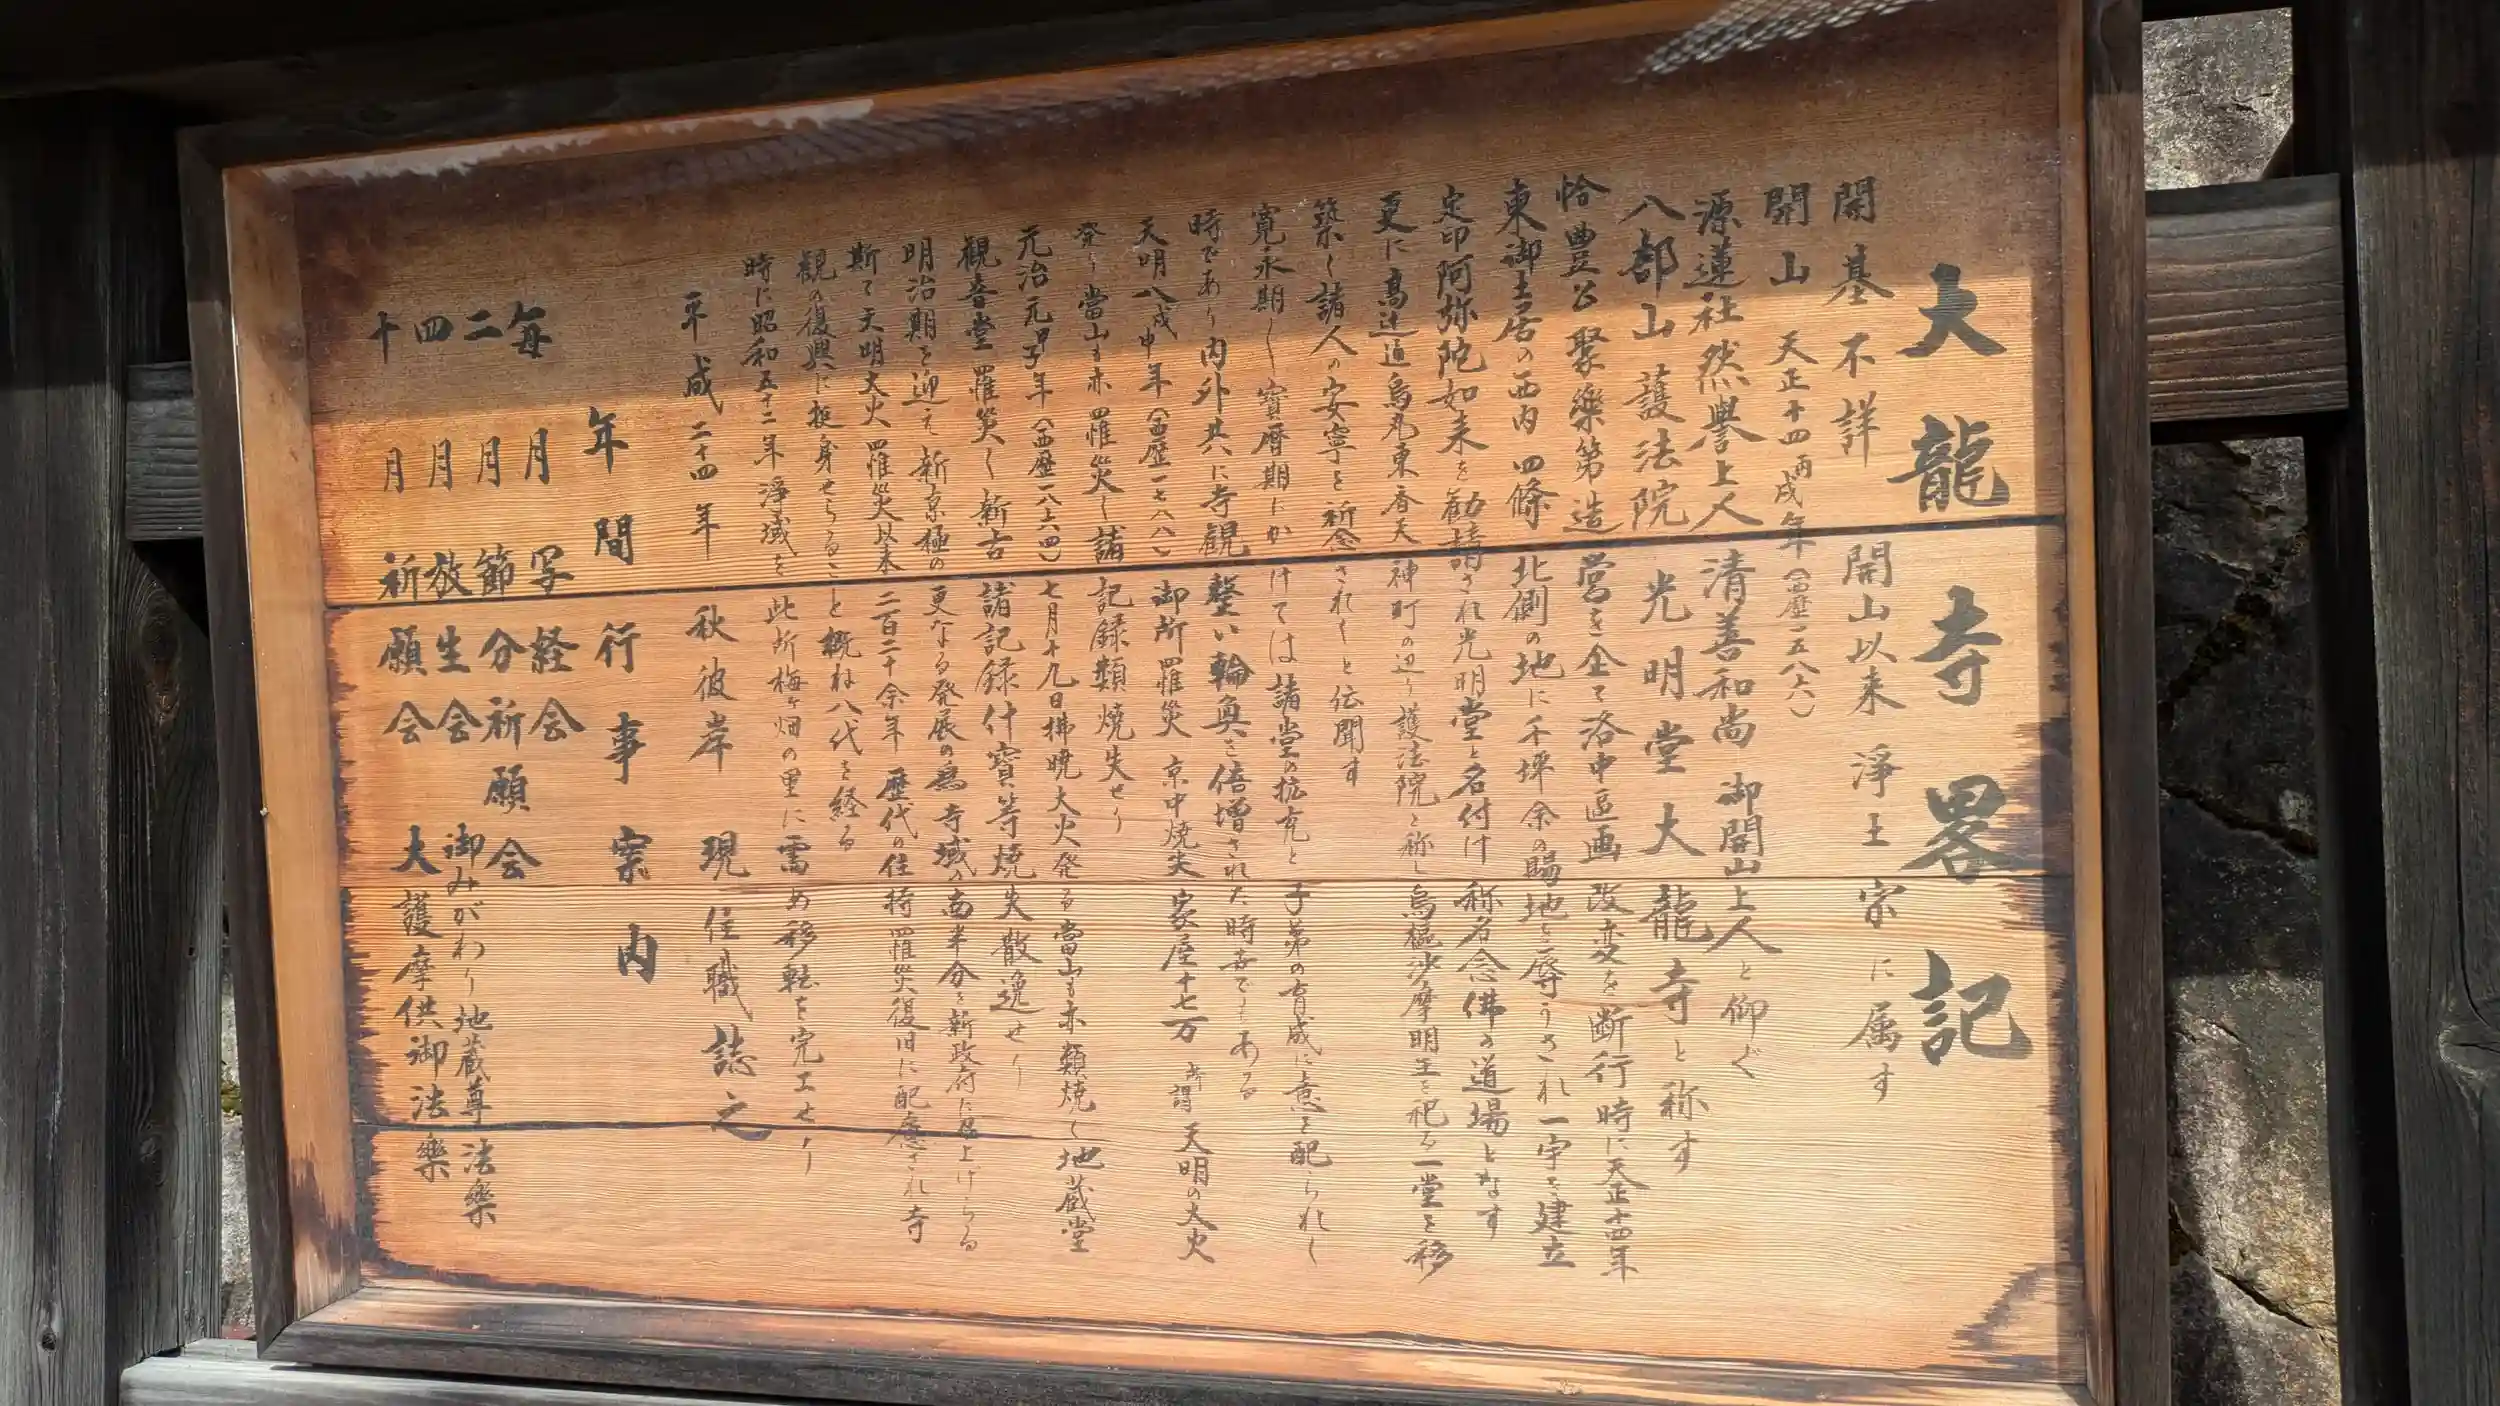 大龍寺畧記
開基不詳 開山以来 淨土宗に属す
開山 天正十四丙戌年(西歴一五八六)
源蓮社然譽上人 清善和尚 御開山上人と仰ぐ
八部山護法院 光明堂大龍寺と称す
恰豊公聚樂第造営を全て洛中区画改変を断行時に天正十四年
東御土居の西内四條北側の地に千坪余の賜地を辱うされ一宇を建立
定印阿弥陀如来を勧請され光明堂と名付け 称名念佛の道場となす
更に高辻通烏丸東 天神町の辺り護法院と称し烏樞沙摩明王を祀る一堂を移
築し諸人の安寧を祈念されしと伝聞す
寛永期し寳暦期にかけては諸堂の抗充と子弟の育成に意を配られし
時であり内外共に寺観整い輪奐を倍増された時世でもある
天明八戊申年(西歴一七八八)御所罹災 京中焼失 家屋十七万 所謂天明の大火
発り當山も亦罹災し諸記録類焼失せり
元治元甲子年(西歴一八六四)七月十九日拂暁大火発る當山も亦類焼し地蔵堂
観音堂罹災し新古諸記録什寳等焼失散逸せり
明治期を迎え新京極の更なる発展の為寺域の南半分を新政府に召上げらる
斯て天明大火罹災以来二百二十余年 歴代の住持罹災復旧に配慮され寺
観の復興に挺身せらること概ね八代を経る
時に昭和五十二年淨域を此所梅ヶ畑の里に需め移転を完工せり
平成二十四年 秋彼岸 現住職誌之
年間行事案内
毎月 写経会
二月 節分祈願会
四月 放生会 御みがわり地蔵尊法樂
十月 祈願会 大護摩供御法樂